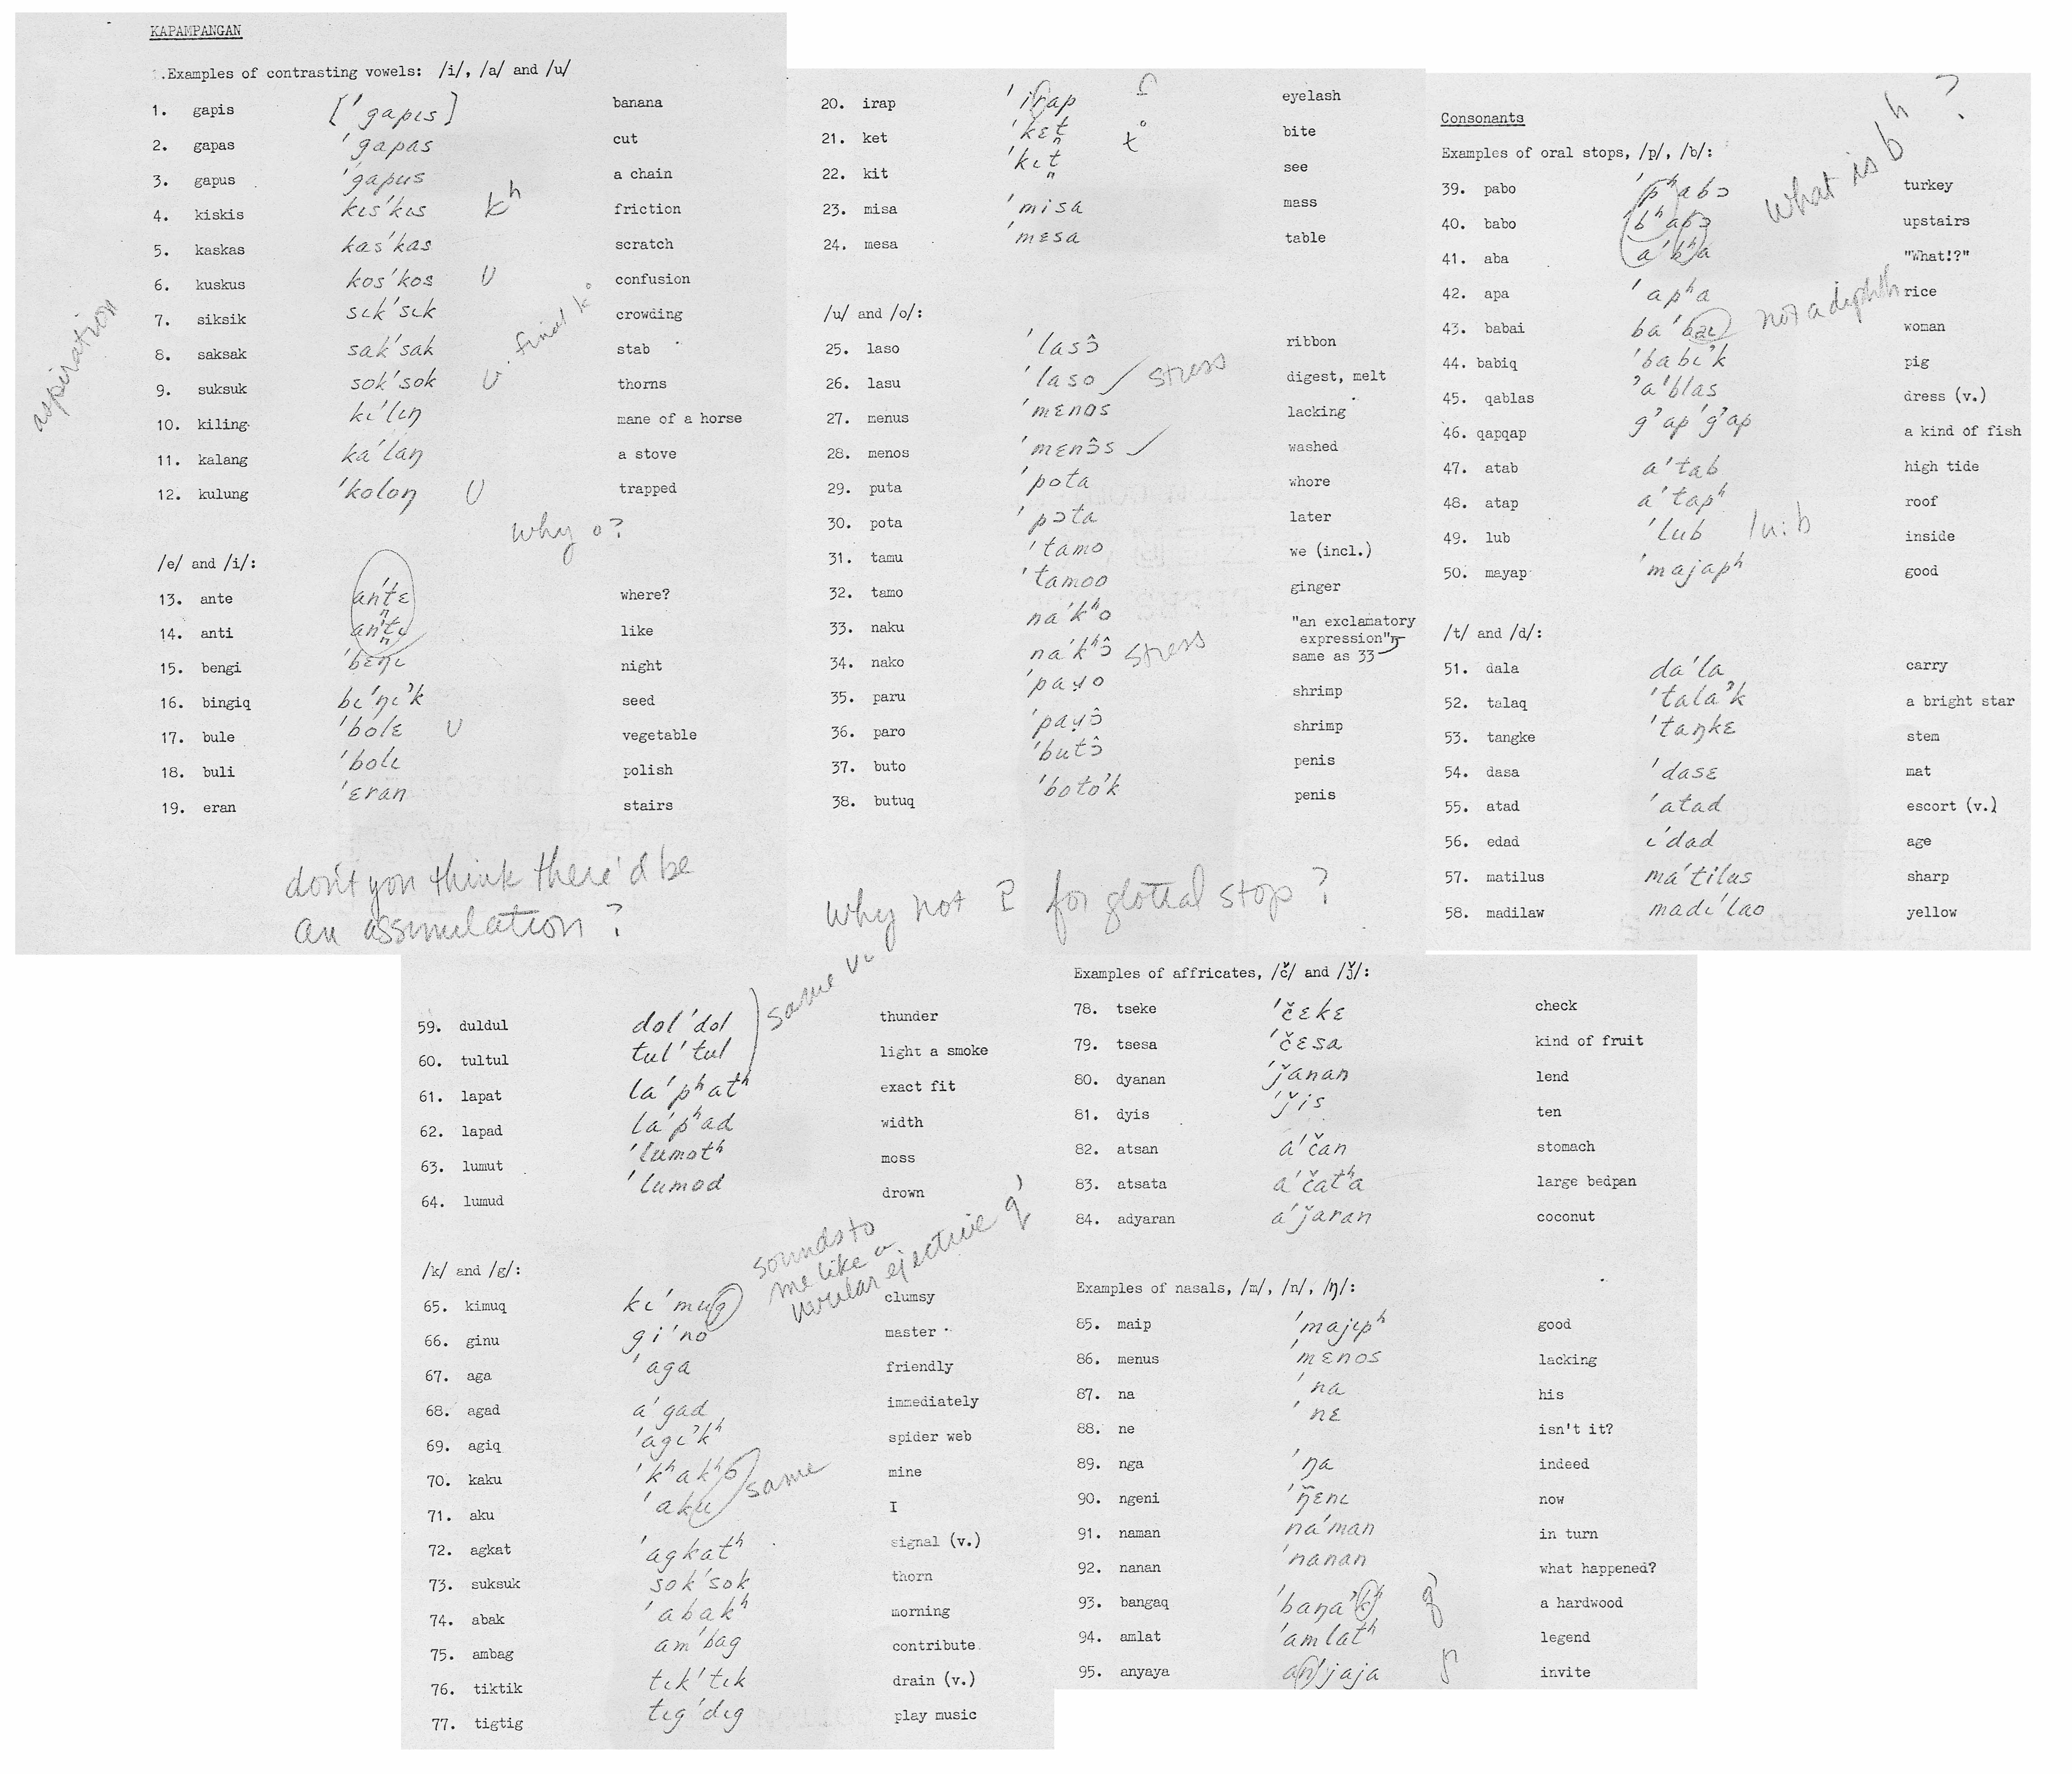 KAPAMPANGAN
Examples of contrasting vowels: /i/, /a/ and /u/
1. gapis [ˈgapɩs] banana
2. gapas ˈgapas cut
3. gapus ˈgapus a chain
4. kiskis kɩsˈkɩs kʰ friction
5. kaskas kasˈkas scratch
6. kuskus kosˈkos U confusion
7. siksik sɩkˈsɩk crowding
8. saksak sakˈsak stab
9. suksuk sokˈsok U thorns
final k°
aspiration
10. kiling kɩˈlɩŋ mane of a horse
11. kalang kaˈlaŋ a stove
12. kulung ˈkoloŋ U trapped
why o?
/e/ and /i/:
13. ante anˈt̪ɛ where?
14. anti anˈt̪ɩ like
15. bengi ˈbɛŋɩ night
16. bingiq bɩˈŋɩˀk seed
17. bule ˈbolɛ U vegetable
18. buli ˈbolɩ polish
19. eran ˈɛran stairs
don't you think there'd be
an assimulation?
20. irap ˈirap eyelash
21. ket ˈkɛt̪ t° bite
22. kit ˈkɩt̪ see
23. misa ˈmisa mass
24. mesa ˈmɛsa table
/u/ and /o/:
25. laso ˈlasɔ̂ ribbon
26. lasu ˈlaso stress digest, melt
27. menus ˈmɛnos lacking
28. menos ˈmɛnɔ̂s washed
29. puta ˈpota whore
30. pota ˈpɔta later
31. tamu ˈtamo we (incl.)
32. tamo ˈtamoo ginger
33. naku naˈkʰo "an exclamatory
expression"
34. nako naˈkʰɔ̂ stress same as 33
35. paru ˈpaɹo shrimp
36. paro ˈpaɹɔ̂ shrimp
37. buto ˈbutɔ̂ penis
38. butuq ˈbotoˀk penis
why not ʔ for glottal stop?
Consonants
Examples of oral stops, /p/, /b/:
39. pabo ˈpʰabɔ turkey
40. babo bʰabɔ upstairs
what is bʰ?
41. aba aˈbʰa "What!?"
42. apa ˈapʰa rice
43. babai baˈbaɩ not a diphth woman
44. babiq ˈbabɩˀk pig
45. qablas ˀaˈblas dress (v.)
46. qapqap gˀapˈgˀap a kind of fish
47. atab aˈtab high tide
48. atap aˈtapʰ roof
49. lub ˈlub lu:b inside
50. mayap ˈmajapʰ good
/t/ and /d/:
51. dala daˈla carry
52. talaq ˈtalaˀk a bright star
53. tangke ˈtaŋkɛ stem
54. dasa ˈdasɛ mat
55. atad ˈatad escort (v.)
56. edad ɩˈdad age
57. matilus maˈtilus sharp
58. madilaw madɩˈlao yellow
59. duldul dolˈdol thunder
60. tultul tulˈtul light a smoke
same
61. lapat laˈpʰatʰ exact fit
62. lapad laˈpʰad width
63. lumut ˈlumotʰ moss
64. lumud ˈlumod drown
/k/ and /g/:
65. kimuq kɩˈmuq clumsy
sounds to
me like a
uvular ejective q'
66. ginu giˈno master
67. aga ˈaga friendly
68. agad aˈgad immediately
69. agiq ˈagɩˀkʰ spider web
70. kaku ˈkʰakʰo mine
71. aku ˈaku same I
72. agkat ˈagkatʰ signal (v.)
73. suksuk sokˈsok thorn
74. abak ˈabakʰ morning
75. ambag amˈbag contribute
76. tiktik tɩkˈtɩk drain (v.)
77. tigtig tɩgˈdɩg play music
Examples of affricates, /č/ and /ǰ/:
78. tseke ˈčɛkɛ check
79. tsesa ˈčɛsa kind of fruit
80. dyanan ˈǰanan lend
81. dyis ˈǰis ten
82. atsan aˈčan stomach
83. atsata aˈčatʰa large bedpan
84. adyaran aˈǰaran coconut
Examples of nasals, /m/, /n/, /ŋ/:
85. maip ˈmajɩpʰ good
86. menus ˈmɛnos lacking
87. na ˈna his
88. ne ˈnɛ isn't it?
89. nga ˈŋa indeed
90. ngeni ˈŋɛnɩ now
91. naman naˈman in turn
92. nanan ˈnanan what happened?
93. bangaq ˈbaŋaˀkʰ q' a hardwood
94. amlat ˈamlatʰ legend
95. anyaya anˈjaja ɲ invite